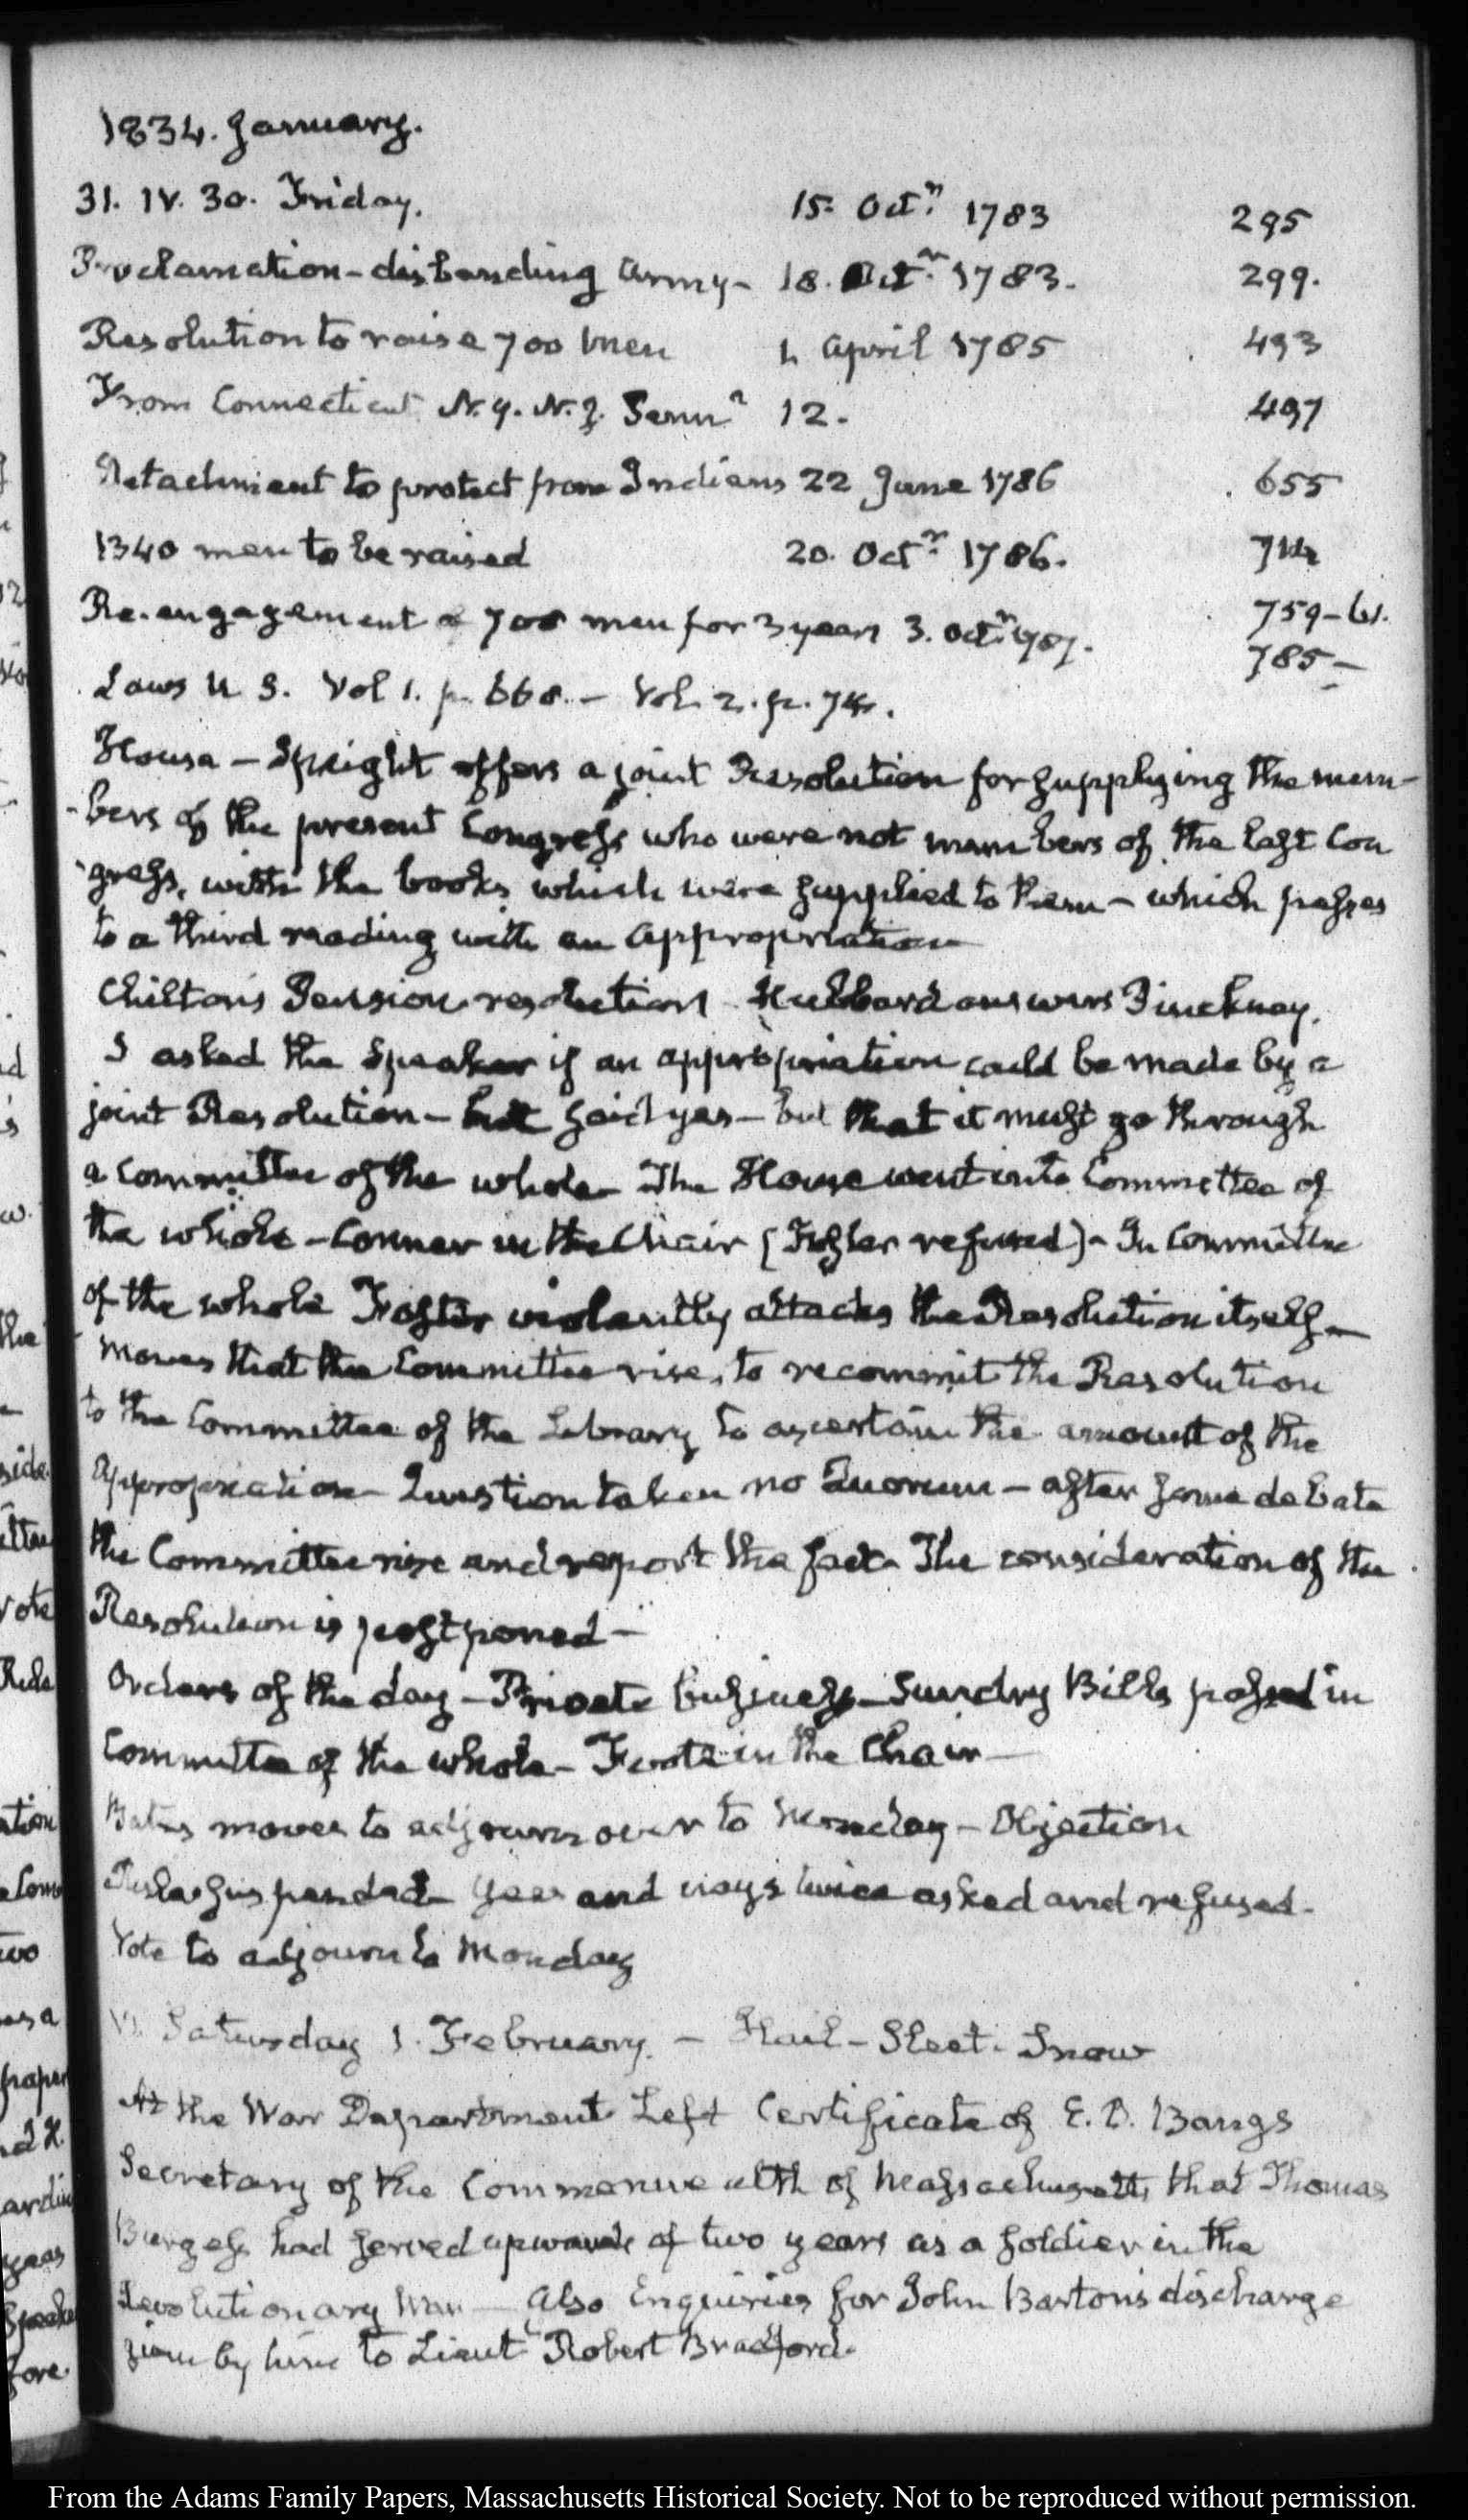 1834. January.
31. IV. 30. Friday. 15. Octr. 1783 295
Proclamation - disbanding Army - 18. Octr. 1783. 299.
Resolution to raise 700 men 1. April 1785 493
From Connecticut N.Y. N.J. Penna 12. 497
Detachment to protect from Indians 22 June 1786 655
1340 men to be raised 20. Octr. 1786. 714
Re-engagement of 700 men for 3 years 3. Octr. 1787. 759-61.
785-
Laws U S. Vol 1. p. 668. - Vol. 2. p. 74.
House - Speight offers a joint Resolution for supplying the mem-
-bers of the present Congress who were not members of the last Con
gress, with the books which were supplied to them - which passes
to a third reading with an appropriation
Chilton's Pension resolution Hubbard answers Pinckney.
I asked the Speaker if an appropriation could be made by a
joint Resolution - he said yes - but that it must go through
a Committee of the whole - The House went into Committee of
the whole - Conner in the Chair (Foster refused) - In Committee
of the whole Foster violently attacks the Resolution itself -
moves that the Committee rise, to recommit the Resolution
to the Committee of the Library to ascertain the amount of the
Appropriation - Question taken no Quorum - after some debate
the Committee rise and report the fact - The consideration of the
Resolution is postponed -
Orders of the day - Private business - Sundry Bills passed in
Committee of the whole - Foote in the Chair -
Bates moves to adjourn over to Monday - Objection
Rule suspended - Yeas and nays twice asked and refused.
Vote to adjourn to Monday
Saturday 1. February. - Hail - Sleet. Snow
At the War Department Left Certificate of E. D. Bangs
Secretary of the Commonwealth of Massachusetts, that Thomas
Burgess had served upwards of two years as a soldier in the
Revolutionary War - Also Enquiries for John Barton's discharge
given by him to Lieut Robert Bradford.
From the Adams Family Papers, Massachusetts Historical Society. Not to be reproduced without permission.